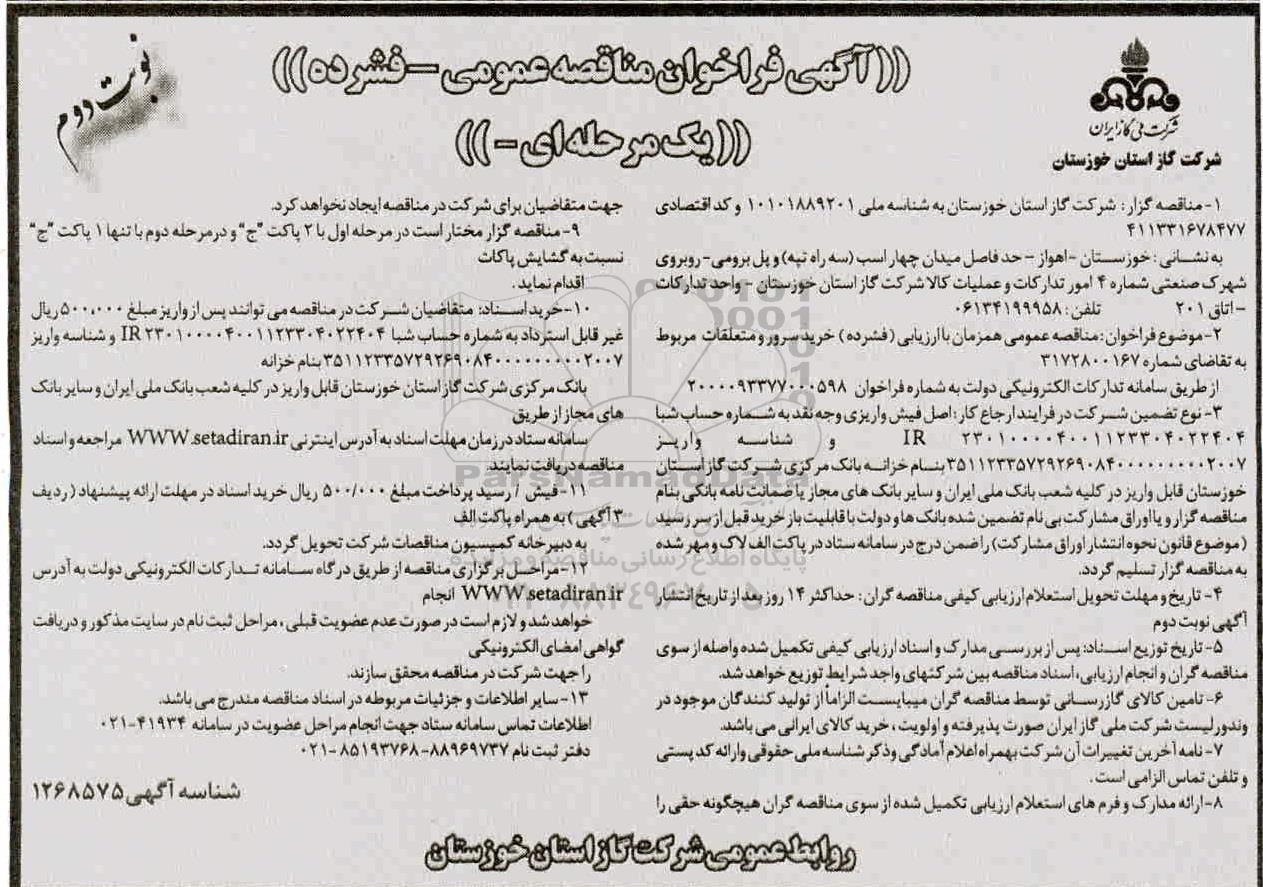 نوبت دوم
((آگهی فراخوان مناقصه عمومی – فشرده))
((یک مرحله ای-))
شرکت ملی گاز ایران
شرکت گاز استان خوزستان
۱- مناقصه گزار: شرکت گاز استان خوزستان به شناسه ملی ۱۰۱۰۱۸۸۹۲۰۱ و کد اقتصادی
۴۱۱۳۳۱۶۷۸۴۷۷
به نشانی: خوزستان -اهواز - حد فاصل میدان چهار اسب (سه راه تپه) و پل برومی- روبروی
شهرک صنعتی شماره ۴ امور تدارکات و عملیات کالا شرکت گاز استان خوزستان - واحد تدارکات
-اتاق ۲۰۱ تلفن: ۰۶۱۳۴۱۹۹۹۵۸
۲-موضوع فراخوان: مناقصه عمومی همزمان با ارزیابی (فشرده) خرید سرور و متعلقات مربوط
به تقاضای شماره ۳۱۷۲۸۰۰۱۶۷
از طریق سامانه تدارکات الکترونیکی دولت به شماره فراخوان ۲۰۰۰۰۹۳۳۷۷۰۰۰۵۹۸
۳- نوع تضمین شرکت در فرایند ارجاع کار: اصل فیش واریزی وجه نقد به شماره حساب شبا
IR ۲۳۰۱۰۰۰۰۴۰۰۱۱۲۳۳۰۴۰۲۲۴۰۴ و شناسه واریز
۳۵۱۱۲۳۳۵۷۲۹۲۶۹۰۸۴۰۰۰۰۰۰۰۰۰۰۲۰۰۷ بنام خزانه بانک مرکزی شرکت گاز استان
خوزستان قابل واریز در کلیه شعب بانک ملی ایران و سایر بانک های مجاز یا ضمانت نامه بانکی بنام
مناقصه گزار و یا اوراق مشارکت بی نام تضمین شده بانک ها و دولت با قابلیت باز خرید قبل از سر رسید
(موضوع قانون نحوه انتشار اوراق مشارکت) را ضمن درج در سامانه ستاد در پاکت الف لاک و مهر شده
به مناقصه گزار تسلیم گردد.
۴- تاریخ و مهلت تحویل استعلام ارزیابی کیفی مناقصه گران: حداکثر ۱۴ روز بعد از تاریخ انتشار
آگهی نوبت دوم
۵- تاریخ توزیع اسناد: پس از بررسی مدارک و اسناد ارزیابی کیفی تکمیل شده واصله از سوی
مناقصه گران و انجام ارزیابی، اسناد مناقصه بین شرکتهای واجد شرایط توزیع خواهد شد.
۶- تامین کالای گازرسانی توسط مناقصه گران میبایست الزاماً از تولید کنندگان موجود در
وندور لیست شرکت ملی گاز ایران صورت پذیرفته و اولویت، خرید کالای ایرانی می باشد.
۷- نامه آخرین تغییرات آن شرکت بهمراه اعلام آمادگی وذکر شناسه ملی حقوقی وارائه کد پستی
و تلفن تماس الزامی است.
۸-ارائه مدارک و فرم های استعلام ارزیابی تکمیل شده از سوی مناقصه گران هیچگونه حقی را
جهت متقاضیان برای شرکت در مناقصه ایجاد نخواهد کرد.
۹- مناقصه گزار مختار است در مرحله اول با ۲ پاکت "ج" و درمرحله دوم با تنها ۱ پاکت "ج"
نسبت به گشایش پاکات
اقدام نماید.
۱۰-خرید اسناد: متقاضیان شرکت در مناقصه می توانند پس از واریز مبلغ ۵۰۰،۰۰۰ ریال
غیر قابل استرداد به شماره حساب شبا IR ۲۳۰۱۰۰۰۰۴۰۰۱۱۲۳۳۰۴۰۲۲۴۰۴ و شناسه واریز
۳۵۱۱۲۳۳۵۷۲۹۲۶۹۰۸۴۰۰۰۰۰۰۰۰۰۰۲۰۰۷ بنام خزانه
بانک مرکزی شرکت گاز استان خوزستان قابل واریز در کلیه شعب بانک ملی ایران و سایر بانک
های مجاز از طریق
سامانه ستاد در زمان مهلت اسناد به آدرس اینترنتی WWW.setadiran.ir مراجعه و اسناد
مناقصه دریافت نمایند.
۱۱-فیش / رسید پرداخت مبلغ ۵۰۰/۰۰۰ ریال خرید اسناد در مهلت ارائه پیشنهاد (ردیف
۳ آگهی) به همراه پاکت الف
به دبیرخانه کمیسیون مناقصات شرکت تحویل گردد.
۱۲-مراحل برگزاری مناقصه از طریق درگاه سامانه تدارکات الکترونیکی دولت به آدرس
WWW.setadiran.ir انجام
خواهد شد و لازم است در صورت عدم عضویت قبلی، مراحل ثبت نام در سایت مذکور و دریافت
گواهی امضای الکترونیکی
را جهت شرکت در مناقصه محقق سازند.
۱۳-سایر اطلاعات و جزئیات مربوطه در اسناد مناقصه مندرج می باشد.
اطلاعات تماس سامانه ستاد جهت انجام مراحل عضویت در سامانه ۴۱۹۳۴-۰۲۱
دفتر ثبت نام ۸۸۹۶۹۷۳۷- ۸۵۱۹۳۷۶۸-۰۲۱
شناسه آگهی ۱۲۶۸۵۷۵
روابط عمومی شرکت گاز استان خوزستان
ParsNamadData
پایگاه اطلاع رسانی مناقصه و مزایده